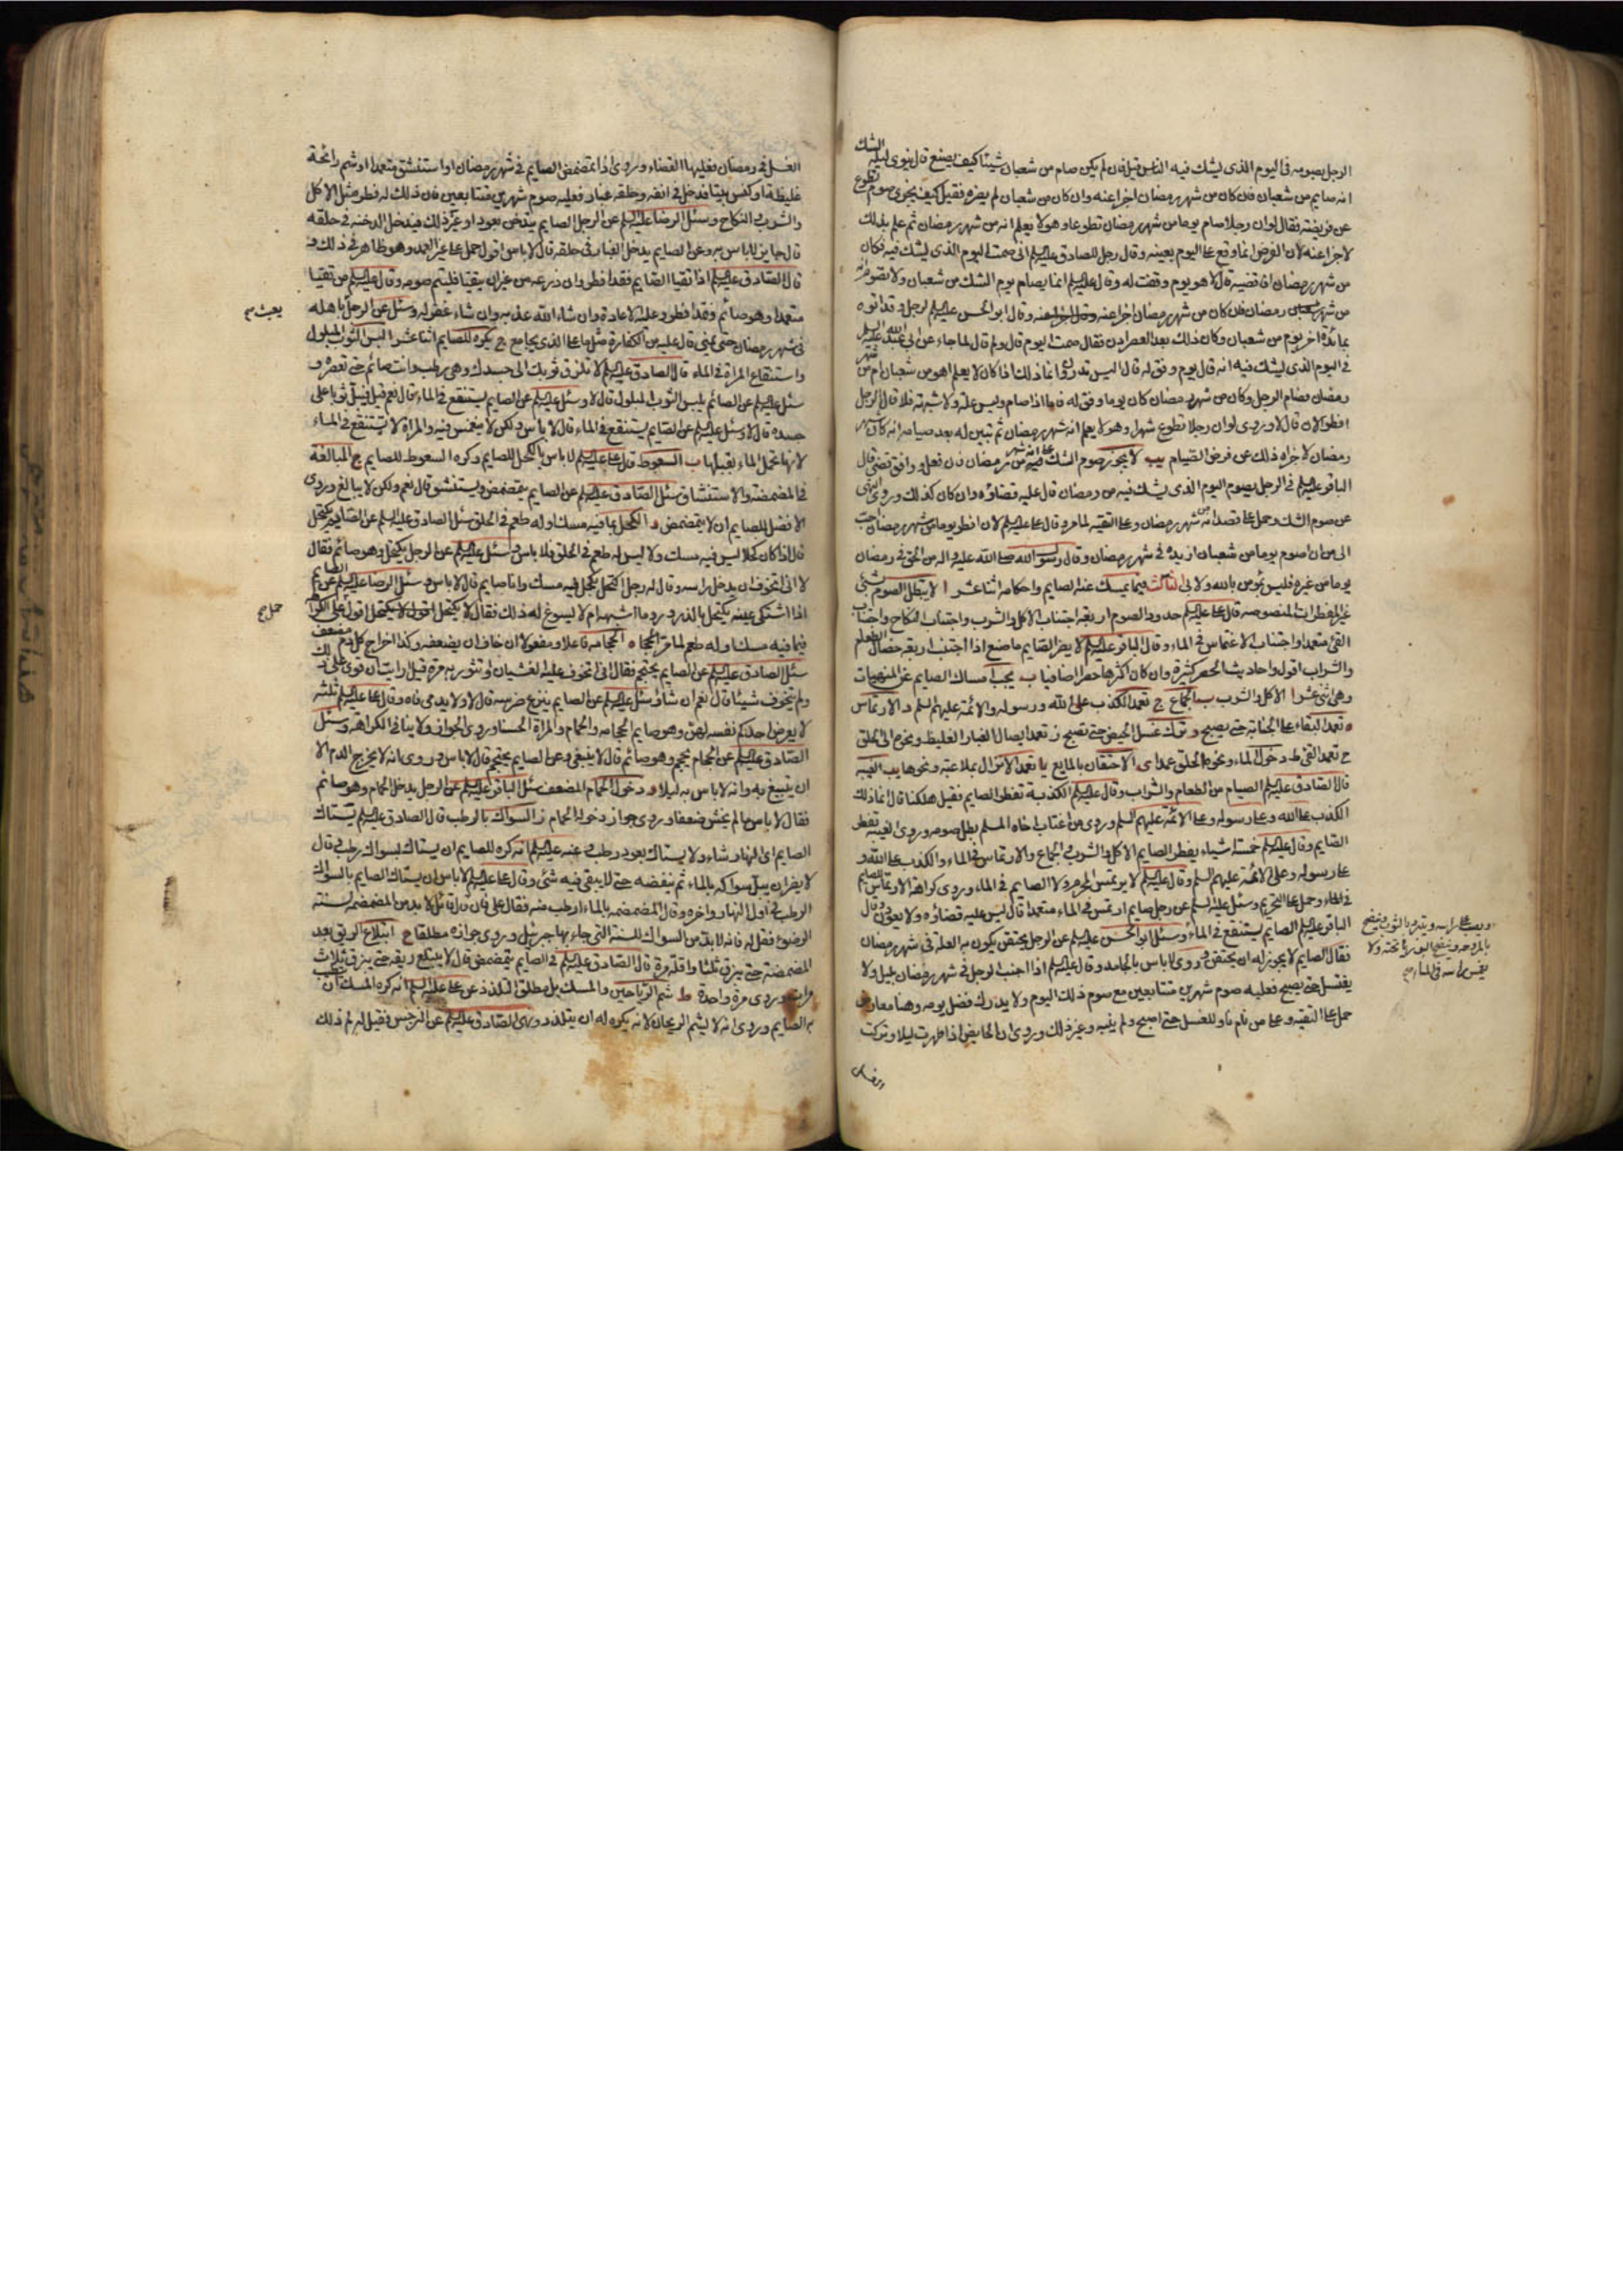 الرجل يصومه في اليوم الذي يشك فيه الناس قيل فان لم يكن صام من شعبان شيئا كيف يصنع قال ينوي ليلة الشك
انه صايم من شعبان فان كان من شهر رمضان اجزا عنه وان كان من شعبان لم يضره فقيل كيف يجزي صوم تطوع
عن فريضة فقال لو ان رجلا صام يوما من شهر رمضان تطوعا وهو لا يعلم انه من شهر رمضان ثم علم بذلك
لاجزا عنه لان الفرض انما وقع على اليوم بعينه وقال رجل للصادق عليه السلم اني صمت اليوم الذي يشك فيه فكان
من شهر رمضان افاقضيه قال لا هو يوم وفقت له وقال عليه السلم انما يصام يوم الشك من شعبان ولا تصومه
من شهر رمضان فان كان من شهر رمضان اجزا عنه وقال ابو الحسن عليه السلم لرجل وقد اتوه
بمائدة اخر يوم من شعبان وكان ذلك بعد العصر ادن فقال صمت اليوم قال ولم قال لما جاء عن ابي عبد الله عليه السلم
في اليوم الذي يشك فيه انه قال يوم وفق له قال اليس تدري انما ذلك اذا كان لا يعلم اهو من شعبان ام من شهر
رمضان فصام الرجل وكان من شهر رمضان كان يوما وفق له فاما اذا صام وليس علة ولا شبهة فلا فقال الرجل
افطر الان قال لا وروي لو ان رجلا تطوع شهرا وهو لا يعلم انه شهر رمضان ثم تبين له بعد صيامه انه كان شهر
رمضان لاجزاه ذلك عن فرض الصيام يب لا يجوز صوم الشك على انه من شهر رمضان فان فعل ووافق قضى قال
الباقر عليه السلم في الرجل يصوم اليوم الذي يشك فيه من رمضان قال عليه قضاؤه وان كان كذلك وروي النهي
عن صوم الشك وحمل على قصد انه من شهر رمضان وعلى التقية لما مر وقال علي عليه السلم لان افطر يوما من شهر رمضان احب
الي من ان اصوم يوما من شعبان ازيده في شهر رمضان وقال رسول الله صلى الله عليه واله من الحق في رمضان
يوما من غيره فليس يؤمن بالله ولا بي الثالث فيما يمسك عنه الصايم واحكامه اثنا عشر ا لا يبطل الصوم شئ
غير المفطرات المنصوصة قال علي عليه السلم حدود الصوم اربعة اجتناب الاكل والشرب واجتناب النكاح واجتناب
القئ متعمدا واجتناب الاغتماس في الماء وقال الباقر عليه السلم لا يضر الصايم ما صنع اذا اجتنب اربع خصال الطعام
والشراب اقول احاديث الحصر كثيرة وان كان اكثرها حصرا اضافيا ب يجب امساك الصايم عن المنهيات
وهي اثني عشر ا الاكل والشرب ب الجماع ج تعمد الكذب على الله ورسوله والائمة عليهم السلم د الارتماس
ه تعمد البقاء على الجنابة حتى يصبح و ترك غسل الحيض حتى تصبح ز تعمد ايصال الغبار الغليظ ونحوه الى الحلق
ح تعمد القئ ط دخول الماء ونحوه الحلق عمدا ي الاحتقان بالمايع يا تعمد الانزال بملاعبة ونحوها يب الغيبة
قال الصادق عليه السلم الصيام من الطعام والشراب وقال عليه السلم الكذبة تفطر الصايم فقيل هلكنا قال انما ذلك
الكذب على الله وعلى رسوله وعلى الائمة عليهم السلم وروي من اغتاب اخاه المسلم بطل صومه وروي الغيبة تفطر
الصايم وقال عليه السلم خمسة اشياء يفطر الصايم الاكل والشرب والجماع والارتماس في الماء والكذب على الله و
على رسوله وعلى الائمة عليهم السلم وقال عليه السلم لا يرتمس المحرم ولا الصايم في الماء وروي كراهة الارتماس للصايم
في الماء وحمل على التحريم وسئل عليه السلم عن رجل صايم ارتمس في الماء متعمدا قال ليس عليه قضاؤه ولا يعودن وقال
الباقر عليه السلم الصايم يستنقع في الماء وسئل ابو الحسن عليه السلم عن الرجل يحتقن يكون به العلة في شهر رمضان
فقال الصايم لا يجوز له ان يحتقن وروي لا باس بالجامد وقال عليه السلم اذا اجنب الرجل في شهر رمضان بليل ولا
يغتسل حتى يصبح فعليه صوم شهرين متتابعين مع صوم ذلك اليوم ولا يدرك فضل يومه وهنا معارض
حمل على التقية وعلى من نام ناويا للغسل حتى اصبح ولم ينتبه وغير ذلك وروي ان الحايض اذا طهرت ليلا وتركت
الغسل
ويصب على راسه ويتبرد بالثوب وينضح
بالمروحة وينضح البوريا تحته ولا
يغمس راسه في الماء صح
الغسل في رمضان فعليها القضاء وروي اذا تمضمض الصايم في شهر رمضان او استنشق متعمدا او شم رائحة
غليظة او كنس بيتا فدخل في انفه وحلقه غبار فعليه صوم شهرين متتابعين فان ذلك له فطر مثل الاكل
والشرب والنكاح وسئل الرضا عليه السلم عن الرجل الصايم يتدخن بعود او غير ذلك فيدخل الدخنة في حلقه
قال جايز لا باس به وعن الصايم يدخل الغبار في حلقه قال لا باس اقول حمل على غير العمد وهو ظاهر في ذلك و
قال الصادق عليه السلم اذا تقيا الصايم فقد افطر وان ذرعه من غير ان يتقيا فليتم صومه وقال عليه السلم من تقيا
متعمدا وهو صائم فقد افطر وعليه الاعادة وان شاء الله عذبه وان شاء غفر له وسئل عن الرجل باهله
يعبث صح
في شهر رمضان حتى يمني قال عليه من الكفارة مثل ما على الذي يجامع ج يكره للصايم اثنا عشر ا لبس الثوب المبلول
واستنقاع المراة في الماء قال الصادق عليه السلم لا تلزق ثوبك الى جسدك وهو رطب وانت صائم حتى تعصره و
سئل عليه السلم عن الصائم يلبس الثوب المبلول قال لا وسئل عليه السلم عن الصايم يستنقع في الماء قال نعم قيل فيبل ثوبا على
جسده قال لا وسئل عليه السلم عن الصايم يستنقع في الماء قال لا باس ولكن لا ينغمس فيه والمراة لا تستنقع في الماء
لانها تحمل الماء بقبلها ب السعوط قال علي عليه السلم لا باس بالكحل للصايم وكره السعوط للصايم ج المبالغة
في المضمضة والاستنشاق سئل الصادق عليه السلم عن الصايم يتمضمض ويستنشق قال نعم ولكن لا يبالغ وروي
الافضل للصايم ان لا يتمضمض د الكحل بما فيه مسك او له طعم في الحلق سئل الصادق عليه السلم عن الصايم يكتحل
قال اذا كان كحلا ليس فيه مسك وليس له طعم في الحلق فلا باس وسئل عليه السلم عن الرجل يكتحل وهو صائم فقال
لا اني اتخوف ان يدخل راسه وقال له رجل اكتحل بكحل فيه مسك وانا صايم قال لا باس وسئل الرضا عليه السلم عن الصايم
اذا اشتكى عينه يكتحل بالذرور وما اشبهه ام لا يسوغ له ذلك فقال لا يكتحل اقول على الكراهة
حمل صح
فيما فيه مسك او له طعم لما مر ه الحجامة فاعلا ومفعولا ان خاف ان يضعفه وكذا اخراج كل دم مضعف
سئل الصادق عليه السلم عن الصايم يحتجم فقال اني اتخوف عليه الغشيان او تثور به مرة قيل ارايت ان قوي على ذلك
ولم يتخوف شيئا قال نعم ان شاء وسئل عليه السلم عن الصايم ينزع ضرسه قال لا ولا يدمي فاه وقال علي عليه السلم ثلثة
لا يعرض احدكم نفسه لهن وهو صايم الحجامة والحمام والمراة الحسناء وروي الجواز ولا ينافي الكراهة وسئل
الصادق عليه السلم عن الحجام يحجم وهو صائم قال لا ينبغي وعن الصايم يحتجم قال لا باس وروي انه لا يخرج الدم الا
ان يتبيغ به وانه لا باس به ليلا و دخول الحمام المضعف سئل الباقر عليه السلم عن الرجل يدخل الحمام وهو صائم
فقال لا باس ما لم يخش ضعفا وروي جواز دخول الحمام ز السواك بالرطب قال الصادق عليه السلم يستاك
الصايم اي النهار شاء ولا يستاك بعود رطب وعنه عليه السلم انه كره للصايم ان يستاك بسواك رطب وقال
لا يضر ان يبل سواكه بالماء ثم ينفضه حتى لا يبقى فيه شئ وقال علي عليه السلم لا باس ان يستاك الصايم بالسواك
الرطب في اول النهار واخره وقال المضمضة بالماء ارطب منه فقال علي فان قال قائل لا بد من المضمضة لسنة
الوضوء فقل له فانه لا بد من السواك للسنة التي جاء بها جبرئيل وروي جوازه مطلقا ح ابتلاع الريق بعد
المضمضة حتى يبزق ثلثا واقله مرة قال الصادق عليه السلم في الصايم يتمضمض قال لا يبتلع ريقه حتى يبزق ثلاث
مرات وروي مرة واحدة ط شم الرياحين والمسك بل مطلق التلذذ عن علي عليه السلم انه كره المسك ان
الصايم وروي انه لا يشم الريحان لانه يكره له ان يتلذذ ونهى الصادق عليه السلم عن النرجس فقيل له لم ذلك